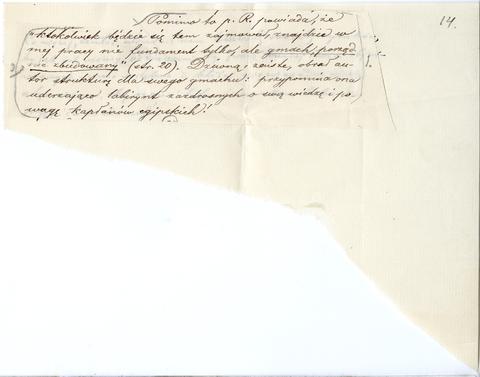 14.
Pomimo to p. R. powiada, że
"Ktokolwiek będzie się tem zajmował, znajdzie w
mej pracy nie fundament tylko, ale gmach, porząd-
nie zbudowany" (str. 20). Dziwną, zaiste, obrał au-
tor strukturę dla swego gmachu: przypomina ona
uderzająco labirynt zazdrosnych o swą wiedzę i po-
wagę kapłanów egipskich!